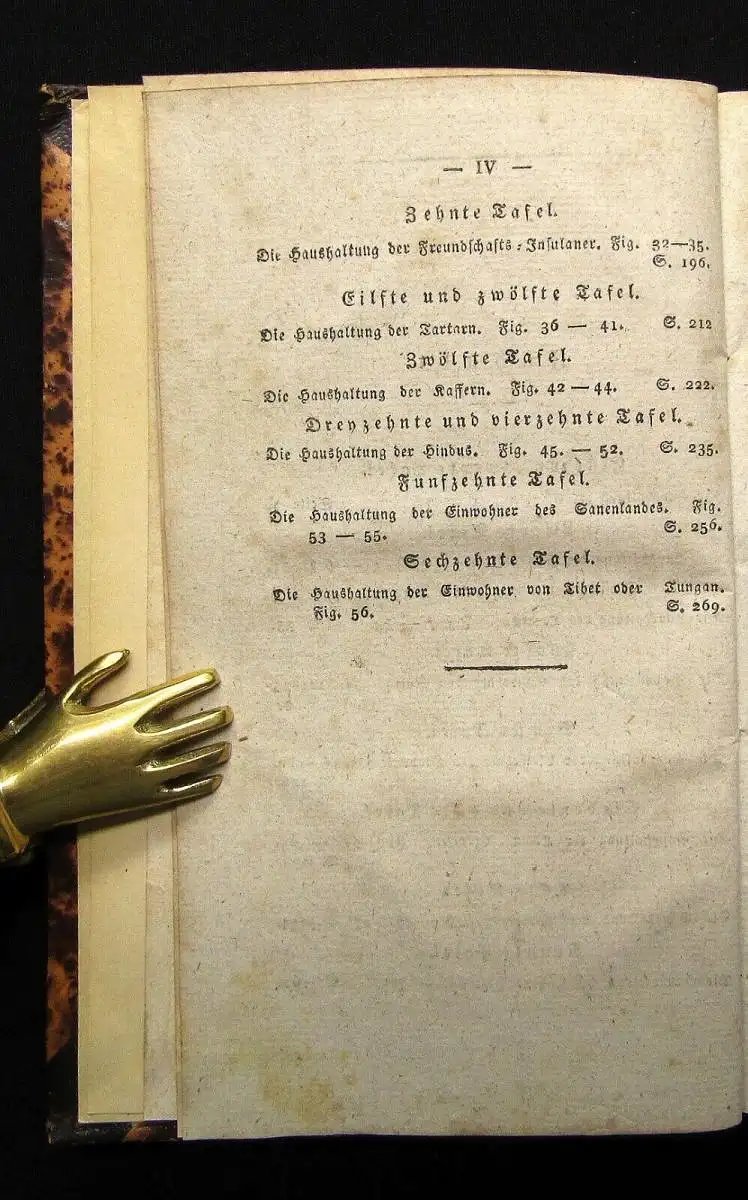 — IV —
Zehnte Tafel.
Die Haushaltung der Freundschafts-Insulaner. Fig. 32—35.
S. 196.
Eilfte und zwölfte Tafel.
Die Haushaltung der Tartarn. Fig. 36 — 41. S. 212
Zwölfte Tafel.
Die Haushaltung der Kaffern. Fig. 42 — 44. S. 222.
Dreyzehnte und vierzehnte Tafel.
Die Haushaltung der Hindus. Fig. 45. — 52. S. 235.
Funfzehnte Tafel.
Die Haushaltung der Einwohner des Sanenlandes. Fig.
53 — 55. S. 256.
Sechzehnte Tafel.
Die Haushaltung der Einwohner von Tibet oder Tungan.
Fig. 56. S. 269.